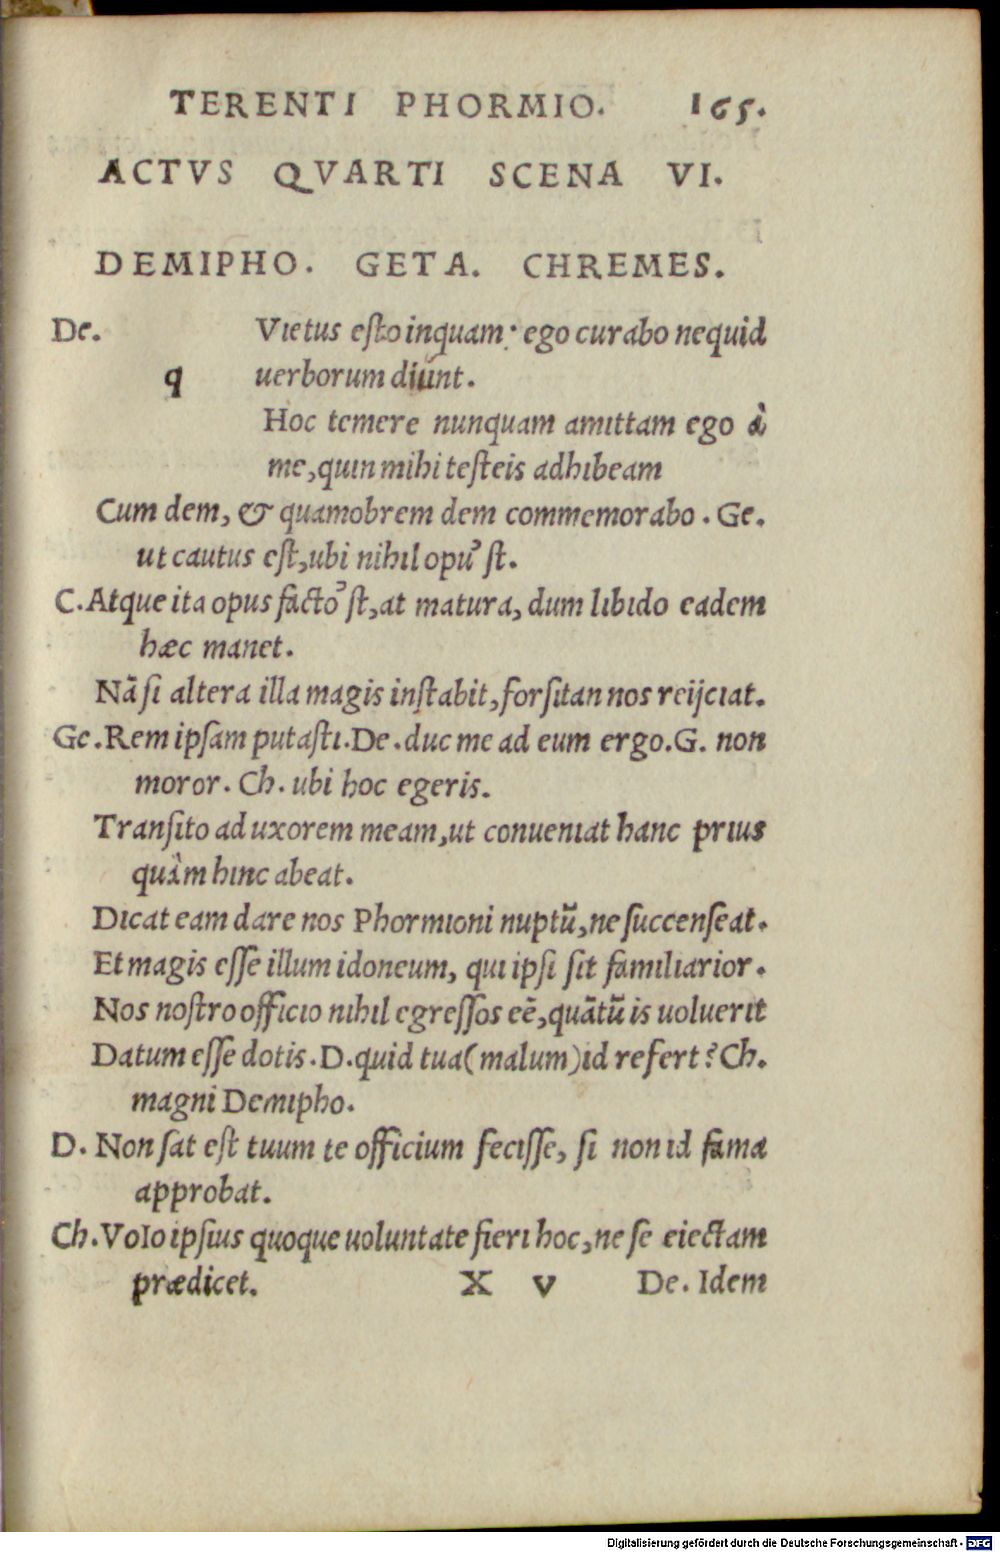 TERENTI PHORMIO. 165.
ACTVS QVARTI SCENA VI.
DEMIPHO. GETA. CHREMES.
De. Vietus esto inquam: ego curabo nequid
q uerborum diiunt.
Hoc temere nunquam amittam ego à
me, quin mihi testeis adhibeam
Cum dem, & quamobrem dem commemorabo. Ge.
ut cautus est, ubi nihil opu' st.
C. Atque ita opus facto' st, at matura, dum libido eadem
hæc manet.
Nā si altera illa magis instabit, forsitan nos reijciat.
Ge. Rem ipsam putasti. De. duc me ad eum ergo. G. non
moror. Ch. ubi hoc egeris.
Transito ad uxorem meam, ut conueniat hanc prius
quàm hinc abeat.
Dicat eam dare nos Phormioni nuptū, ne succenseat.
Et magis esse illum idoneum, qui ipsi sit familiarior.
Nos nostro officio nihil egressos eē, quātū is uoluerit
Datum esse dotis. D. quid tua (malum) id refert? Ch.
magni Demipho.
D. Non sat est tuum te officium fecisse, si non id fama
approbat.
Ch. Volo ipsius quoque uoluntate fieri hoc, ne se eiectam
prædicet. X v De. Idem
Digitalisierung gefördert durch die Deutsche Forschungsgemeinschaft - DFG